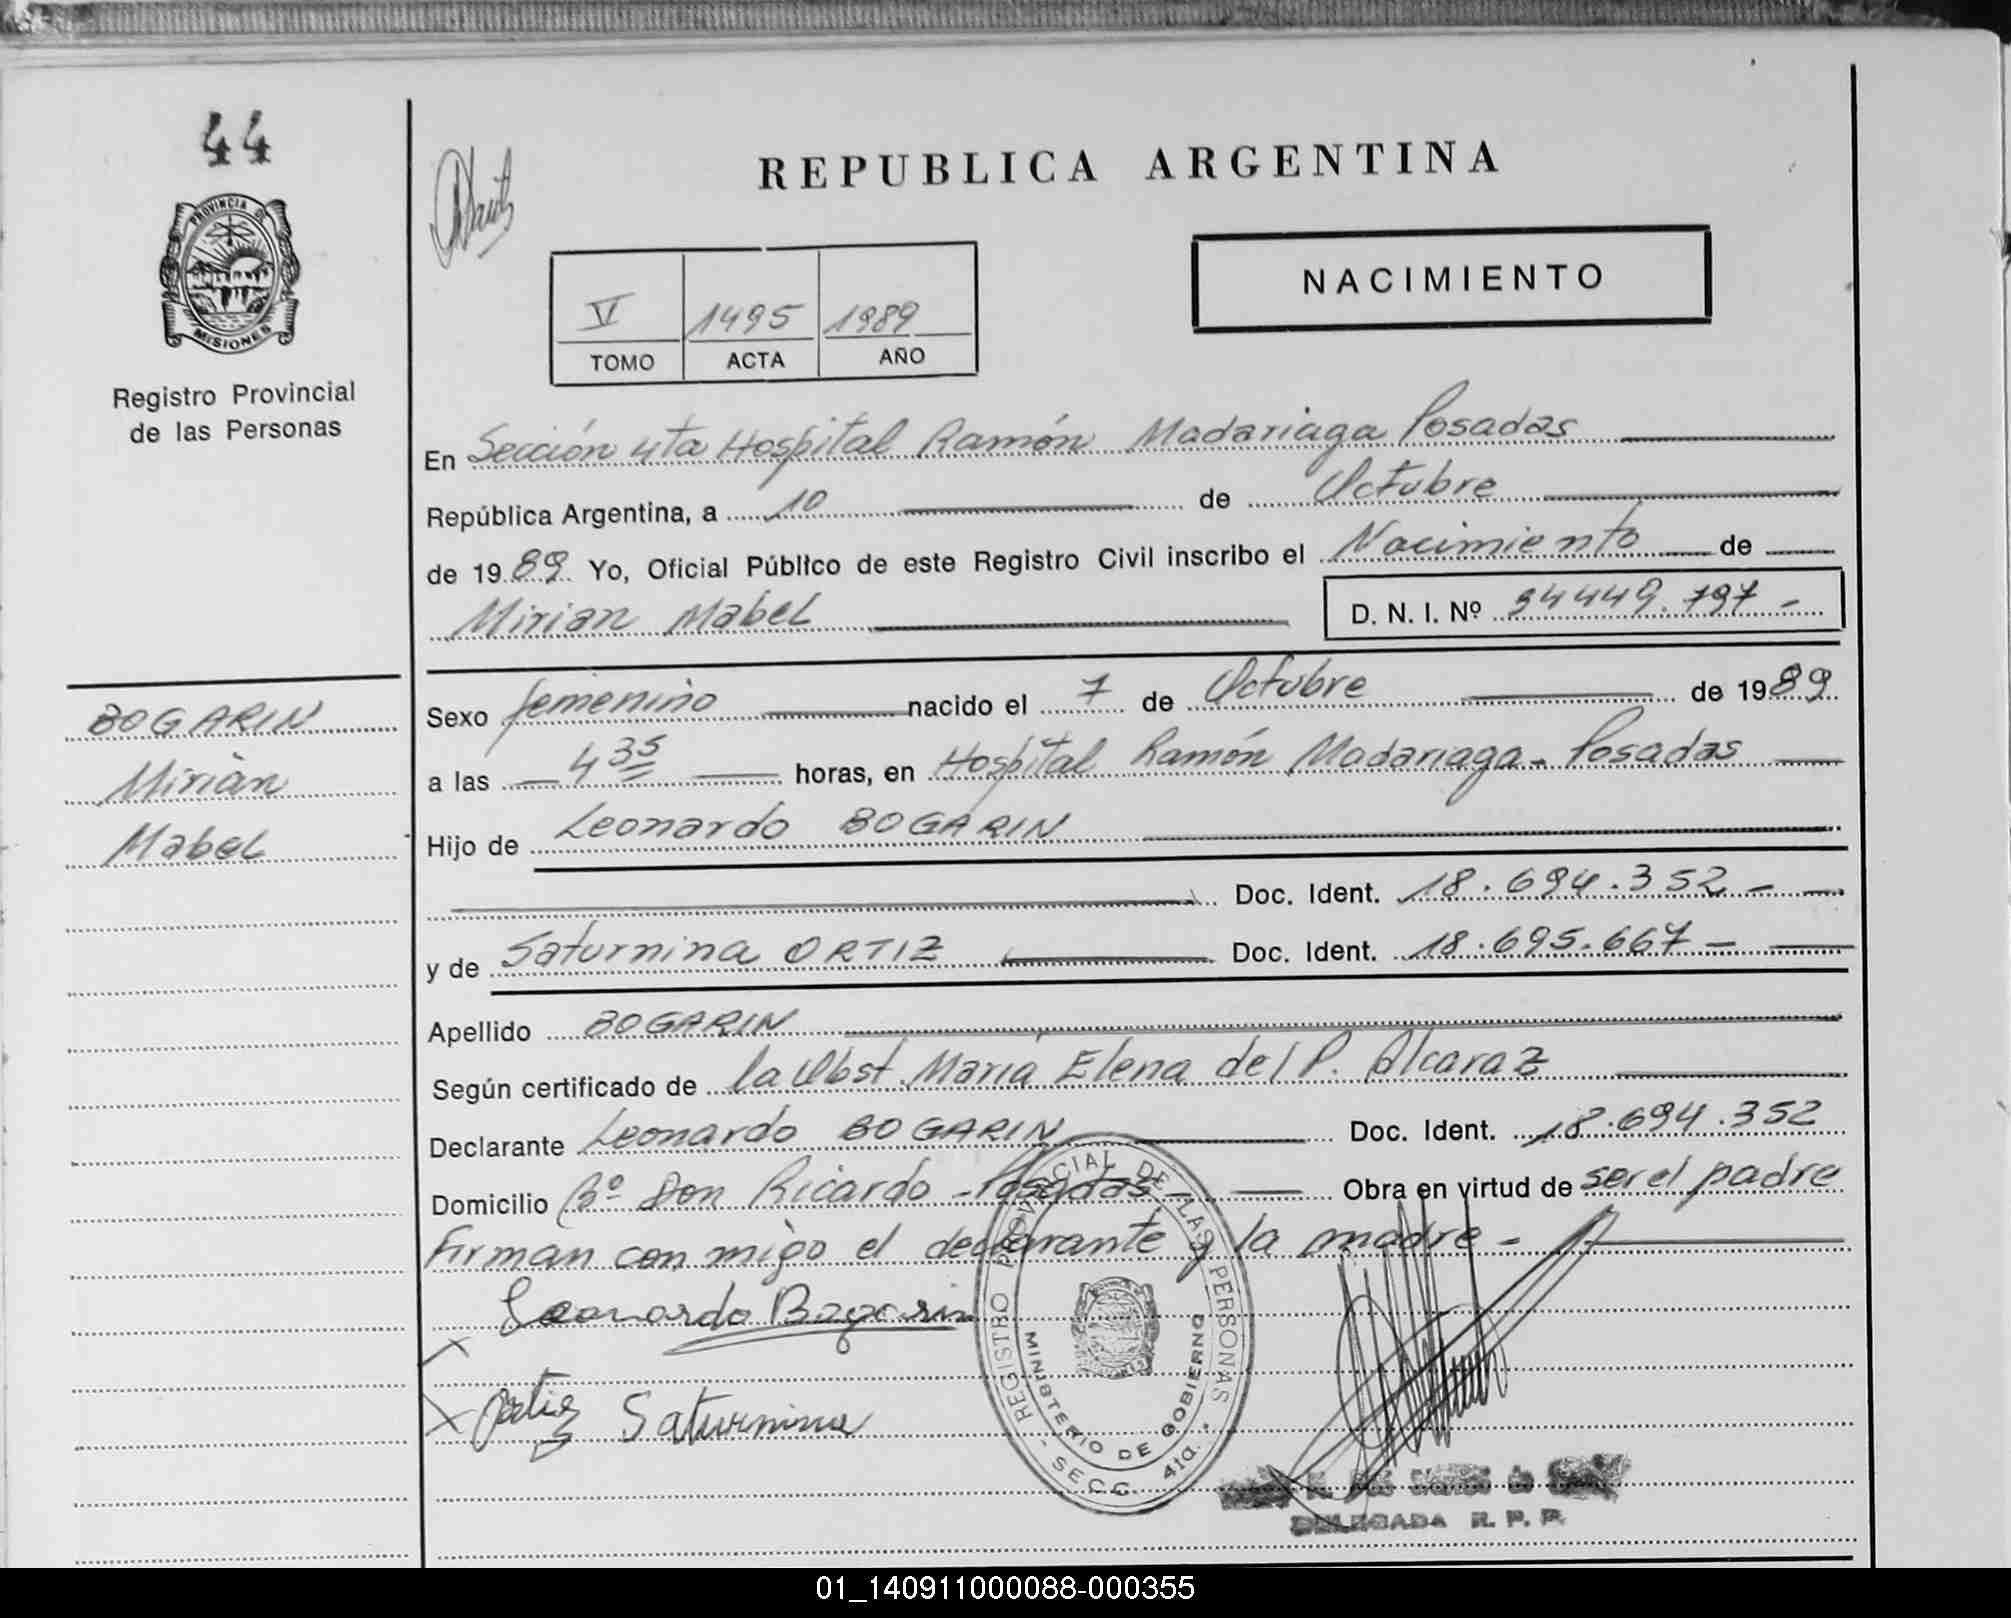 44
PROVINCIA DE
MISIONES
Registro Provincial
de las Personas
BOGARIN
Mirian
Mabel
REPUBLICA ARGENTINA
NACIMIENTO
VI 1495 1989
TOMO ACTA AÑO
En Sección 4ta Hospital Ramón Madariaga Posadas
República Argentina, a 10 de Octubre
de 1989 Yo, Oficial Público de este Registro Civil inscribo el Nacimiento de
Mirian Mabel D. N. I. Nº 34449.797-
Sexo femenino nacido el 7 de Octubre de 1989
a las 4 35 horas, en Hospital Ramón Madariaga - Posadas
Hijo de Leonardo BOGARIN
Doc. Ident. 18.694.352-
y de Saturnina ORTIZ Doc. Ident. 18.695.667-
Apellido BOGARIN
Según certificado de la Obst. María Elena del P. Alcaraz
Declarante Leonardo BOGARIN Doc. Ident. 18.694.352
Domicilio Bº Don Ricardo - Posadas - Obra en virtud de ser el padre
Firman con migo el declarante y la madre -
Leonardo Bogarin
Ortiz Saturnina
REGISTRO PROVINCIAL DE LAS PERSONAS
MINISTERIO DE GOBIERNO
- SECC. 4ta.
DELEGADA R. P. P.
01_140911000088-000355